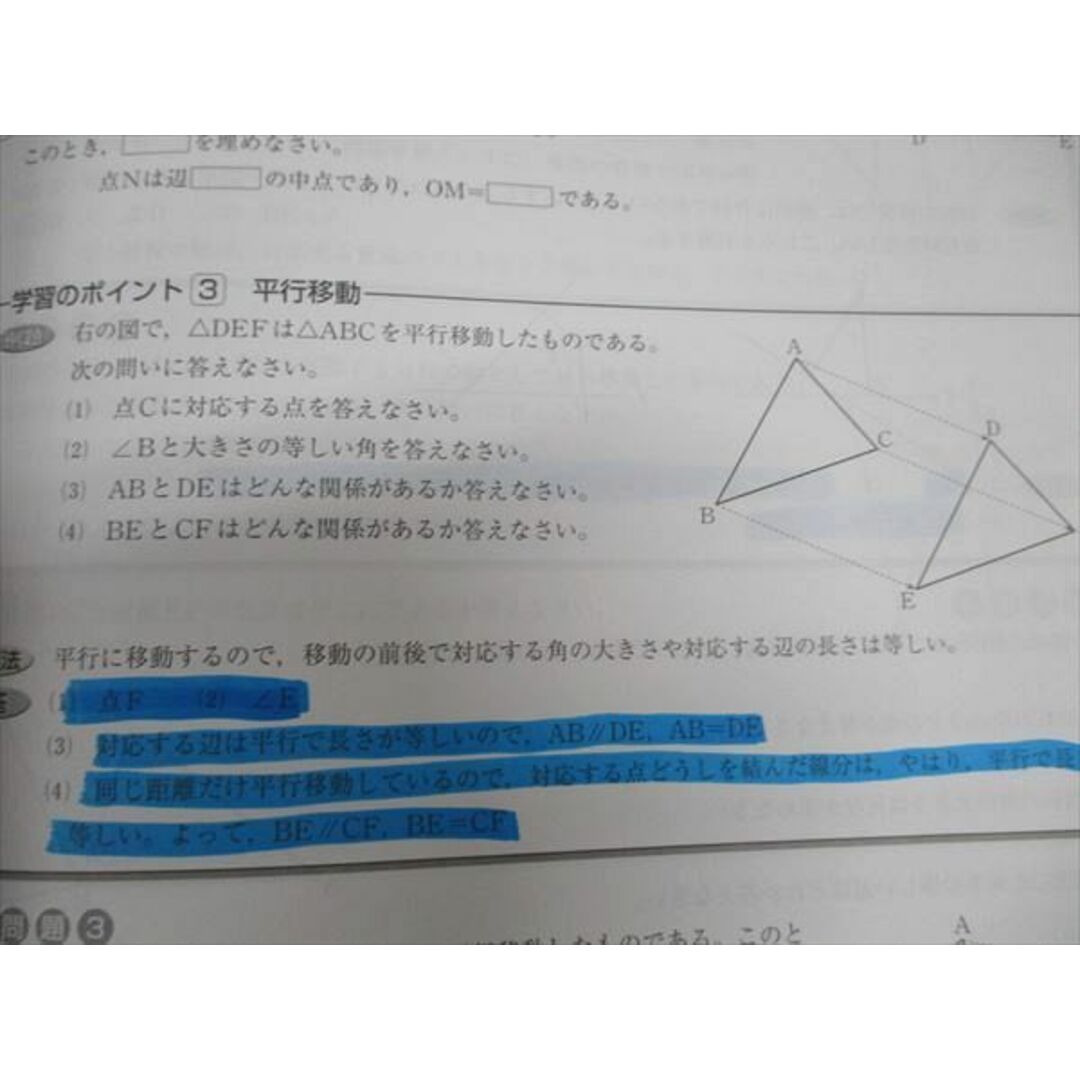 このとき，□を埋めなさい。
点Nは辺□の中点であり，OM=□である。
D E
学習のポイント3 平行移動
右の図で，△DEFは△ABCを平行移動したものである。
次の問いに答えなさい。
(1) 点Cに対応する点を答えなさい。
(2) ∠Bと大きさの等しい角を答えなさい。
(3) ABとDEはどんな関係があるか答えなさい。
(4) BEとCFはどんな関係があるか答えなさい。
A
D
C
B
E
法 平行に移動するので，移動の前後で対応する角の大きさや対応する辺の長さは等しい。
答 (1) 点F (2) ∠E
(3) 対応する辺は平行で長さが等しいので，AB∥DE，AB=DE
(4) 同じ距離だけ平行移動しているので，対応する点どうしを結んだ線分は，やはり，平行で長
等しい。よって，BE∥CF，BE=CF
問題3
移動したものである。このと
A